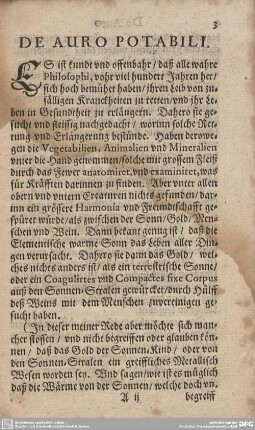 3
DE AURO POTABILI.
ES ist kundt vnd offenbahr / daß alle wahre
Philosophi, vohr viel hundert Jahren her /
sich hoch bemühet haben / ihren Leib von zu-
fälligen Kranckheiten zu retten / vnd jhr Le-
ben in Gesundheit zu erlängern. Dahero sie ge-
sucht vnd fleissig nachgedacht / worinn solche Ret-
tung vnd Erlängerung bestünde. Haben derowe-
gen die Vegetabilien, Animalien vnd Mineralien
vnter die Hand genommen / solche mit grossem Fleiß
durch das Fewer anatomiret, vnd examiniret, was
für Kräfften darinnen zu finden. Aber vnter allen
obern vnd vntern Creaturen nichts gefunden / dar-
inn ein grössere Harmonia vnd Freundschafft ge-
spüret würde / als zwischen der Sonn / Gold / Men-
schen vnd Wein. Dann bekant genug ist / daß die
Elementische warme Sonn das Leben aller Din-
gen verursacht. Dahero sie dann das Gold / wel-
ches nichts anders ist / als ein terrestrische Sonne /
oder ein Coagulirtes vnd Compactes fixe Corpus
auß den Sonnen-Stralen gewürcket / durch Hülff
deß Weins mit dem Menschen zuvereinigen ge-
sucht haben.
(In dieser meiner Rede aber möchte sich man-
cher stossen / vnd nicht begreiffen oder glauben kön-
nen / daß das Gold der Sonnen-Kind / oder von
den Sonnen-Stralen ein greiffliches Metallisch
Wesen worden sey. Vnd sagen / wie ist es müglich
daß die Wärme von der Sonnen / welche doch vn-
A ij begreiff